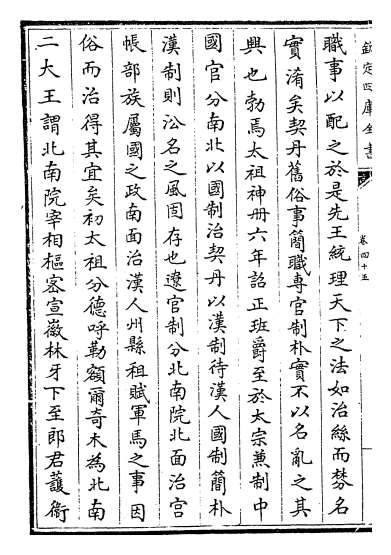 欽定四庫全書
卷四十五
職事以配之於是先王統理天下之法如治絲而棼名
實淆矣契丹舊俗事簡職專官制朴實不以名亂之其
興也勃焉太祖神冊六年詔正班爵至於太宗兼制中
國官分南北以國制治契丹以漢制待漢人國制簡朴
漢制則沿名之風固存也遼官制分北南院北面治宮
帳部族屬國之政南面治漢人州縣租賦軍馬之事因
俗而治得其宜矣初太祖分德呼勒額爾奇木為北南
二大王謂北南院宰相樞密宣徽林牙下至郎君護衛